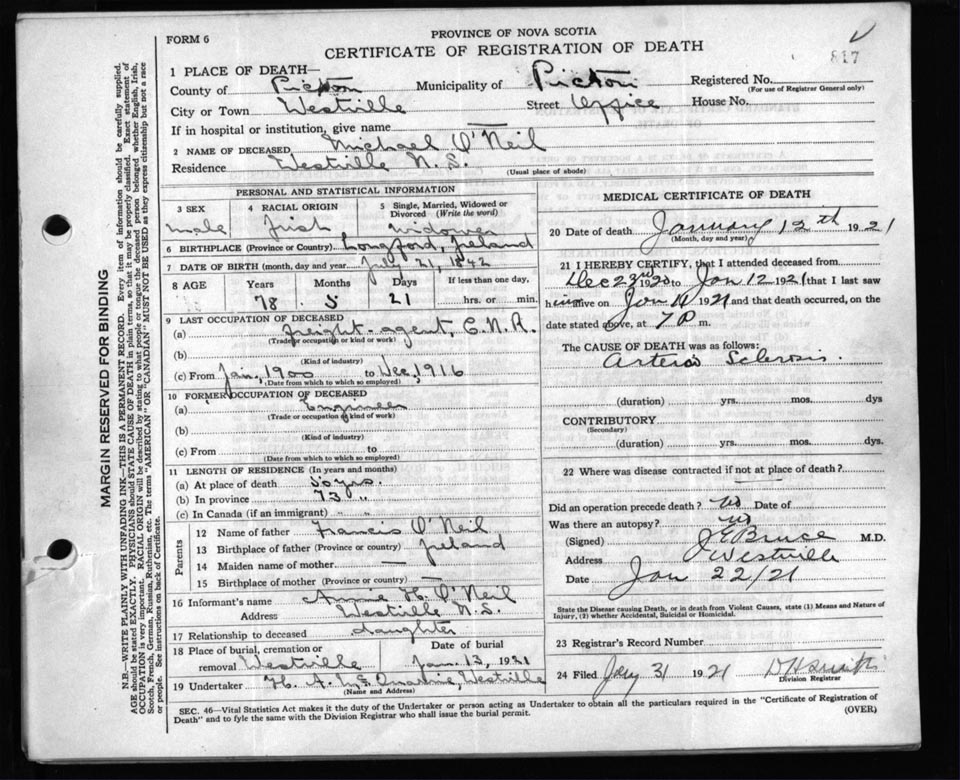 817
FORM 6
PROVINCE OF NOVA SCOTIA
CERTIFICATE OF REGISTRATION OF DEATH
MARGIN RESERVED FOR BINDING
N.B.—WRITE PLAINLY WITH UNFADING INK—THIS IS A PERMANENT RECORD. Every item of information should be carefully supplied.
AGE should be stated EXACTLY. PHYSICIANS should STATE CAUSE OF DEATH in plain terms, so that it may be properly classified. Exact statement of
OCCUPATION is very important. RACIAL ORIGIN will be described by stating to what people or tongue the deceased person belonged whether English, Irish,
Scotch, French, German, Russian, Ruthenian, etc. The terms "AMERICAN" OR "CANADIAN" MUST NOT BE USED as they express citizenship but not a race
or people. See instructions on back of Certificate.
1 PLACE OF DEATH—
County of Pictou Municipality of Pictou Registered No.
(For use of Registrar General only)
City or Town Westville Street Office House No.
If in hospital or institution, give name —
2 NAME OF DECEASED Michael O'Neil
Residence Westville N.S.
(Usual place of abode)
PERSONAL AND STATISTICAL INFORMATION
3 SEX male
4 RACIAL ORIGIN Irish
5 Single, Married, Widowed or Divorced (Write the word) Widower
6 BIRTHPLACE (Province or Country) Longford, Ireland
7 DATE OF BIRTH (month, day and year) July 21, 1842
8 AGE Years Months Days If less than one day,
78 5 21 hrs. or min.
9 LAST OCCUPATION OF DECEASED
(a) freight-agent, C.N.R.
(Trade or occupation or kind of work)
(b)
(Kind of industry)
(c) From Jan, 1900 to Dec, 1916
(Date from which to which so employed)
10 FORMER OCCUPATION OF DECEASED
(a) Engineer
(Trade or occupation of kind of work)
(b)
(Kind of industry)
(c) From to
(Date from which to which so employed)
11 LENGTH OF RESIDENCE (In years and months)
(a) At place of death 50 yrs.
(b) In province 73 "
(c) In Canada (if an immigrant) " "
Parents
12 Name of father Francis O'Neil
13 Birthplace of father (Province or country) Ireland
14 Maiden name of mother —
15 Birthplace of mother (Province or country) —
16 Informant's name Annie H. O'Neil
Address Westville N.S.
17 Relationship to deceased daughter
18 Place of burial, cremation or Date of burial
removal Westville Jan. 13, 1921
19 Undertaker H. A. Westville
(Name and Address)
MEDICAL CERTIFICATE OF DEATH
20 Date of death January 12th 1921
(Month, day and year)
21 I HEREBY CERTIFY, that I attended deceased from
Dec 23rd 1920 to Jan 12 1921 that I last saw
him alive on Jan 1921 and that death occurred, on
date stated above, at 7 P m.
The CAUSE OF DEATH was as follows:
Arterio Sclerosis.
(duration) yrs. mos. dys
CONTRIBUTORY
(Secondary)
(duration) yrs. mos. dys.
22 Where was disease contracted if not at place of death?
Did an operation precede death? no Date of
Was there an autopsy? no
(Signed) J E Bruce M.D.
Address Westville
Date Jan 22/21
State the Disease causing Death, or in death from Violent Causes, state (1) Means and Nature of
Injury, (2) whether Accidental, Suicidal or Homicidal.
23 Registrar's Record Number
24 Filed Jany 31 1921 D H Smith
Division Registrar
SEC. 46—Vital Statistics Act makes it the duty of the Undertaker or person acting as Undertaker to obtain all the particulars required in the "Certificate of Registration of
Death" and to fyle the same with the Division Registrar who shall issue the burial permit.
(OVER)